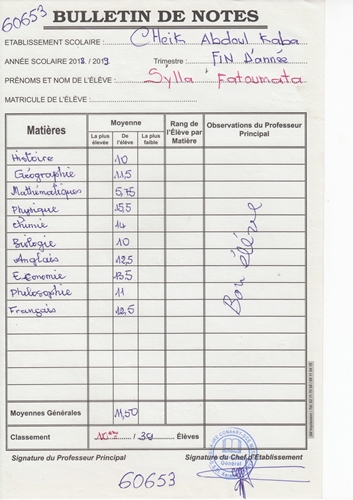 60653
BULLETIN DE NOTES
ETABLISSEMENT SCOLAIRE : CHeik Abdoul Kaba
ANNÉE SCOLAIRE 2018 / 2019 Trimestre : FIN D'année
PRÉNOMS ET NOM DE L'ÉLÈVE : Sylla Fatoumata
MATRICULE DE L'ÉLÈVE :
Matières Moyenne Rang de l'Élève par Matière Observations du Professeur Principal
La plus élevée De l'élève La plus faible
Histoire 10
Géographie 11,5
Mathématiques 5,75
Physique 15,5
chimie 14
Biologie 10
Anglais 12,5
Economie 13,5
Philosophie 11
Français 12,5
Bon élève
Moyennes Générales 11,50
Classement 10ème / 39 Élèves
Signature du Professeur Principal Signature du Chef d'Établissement
60653